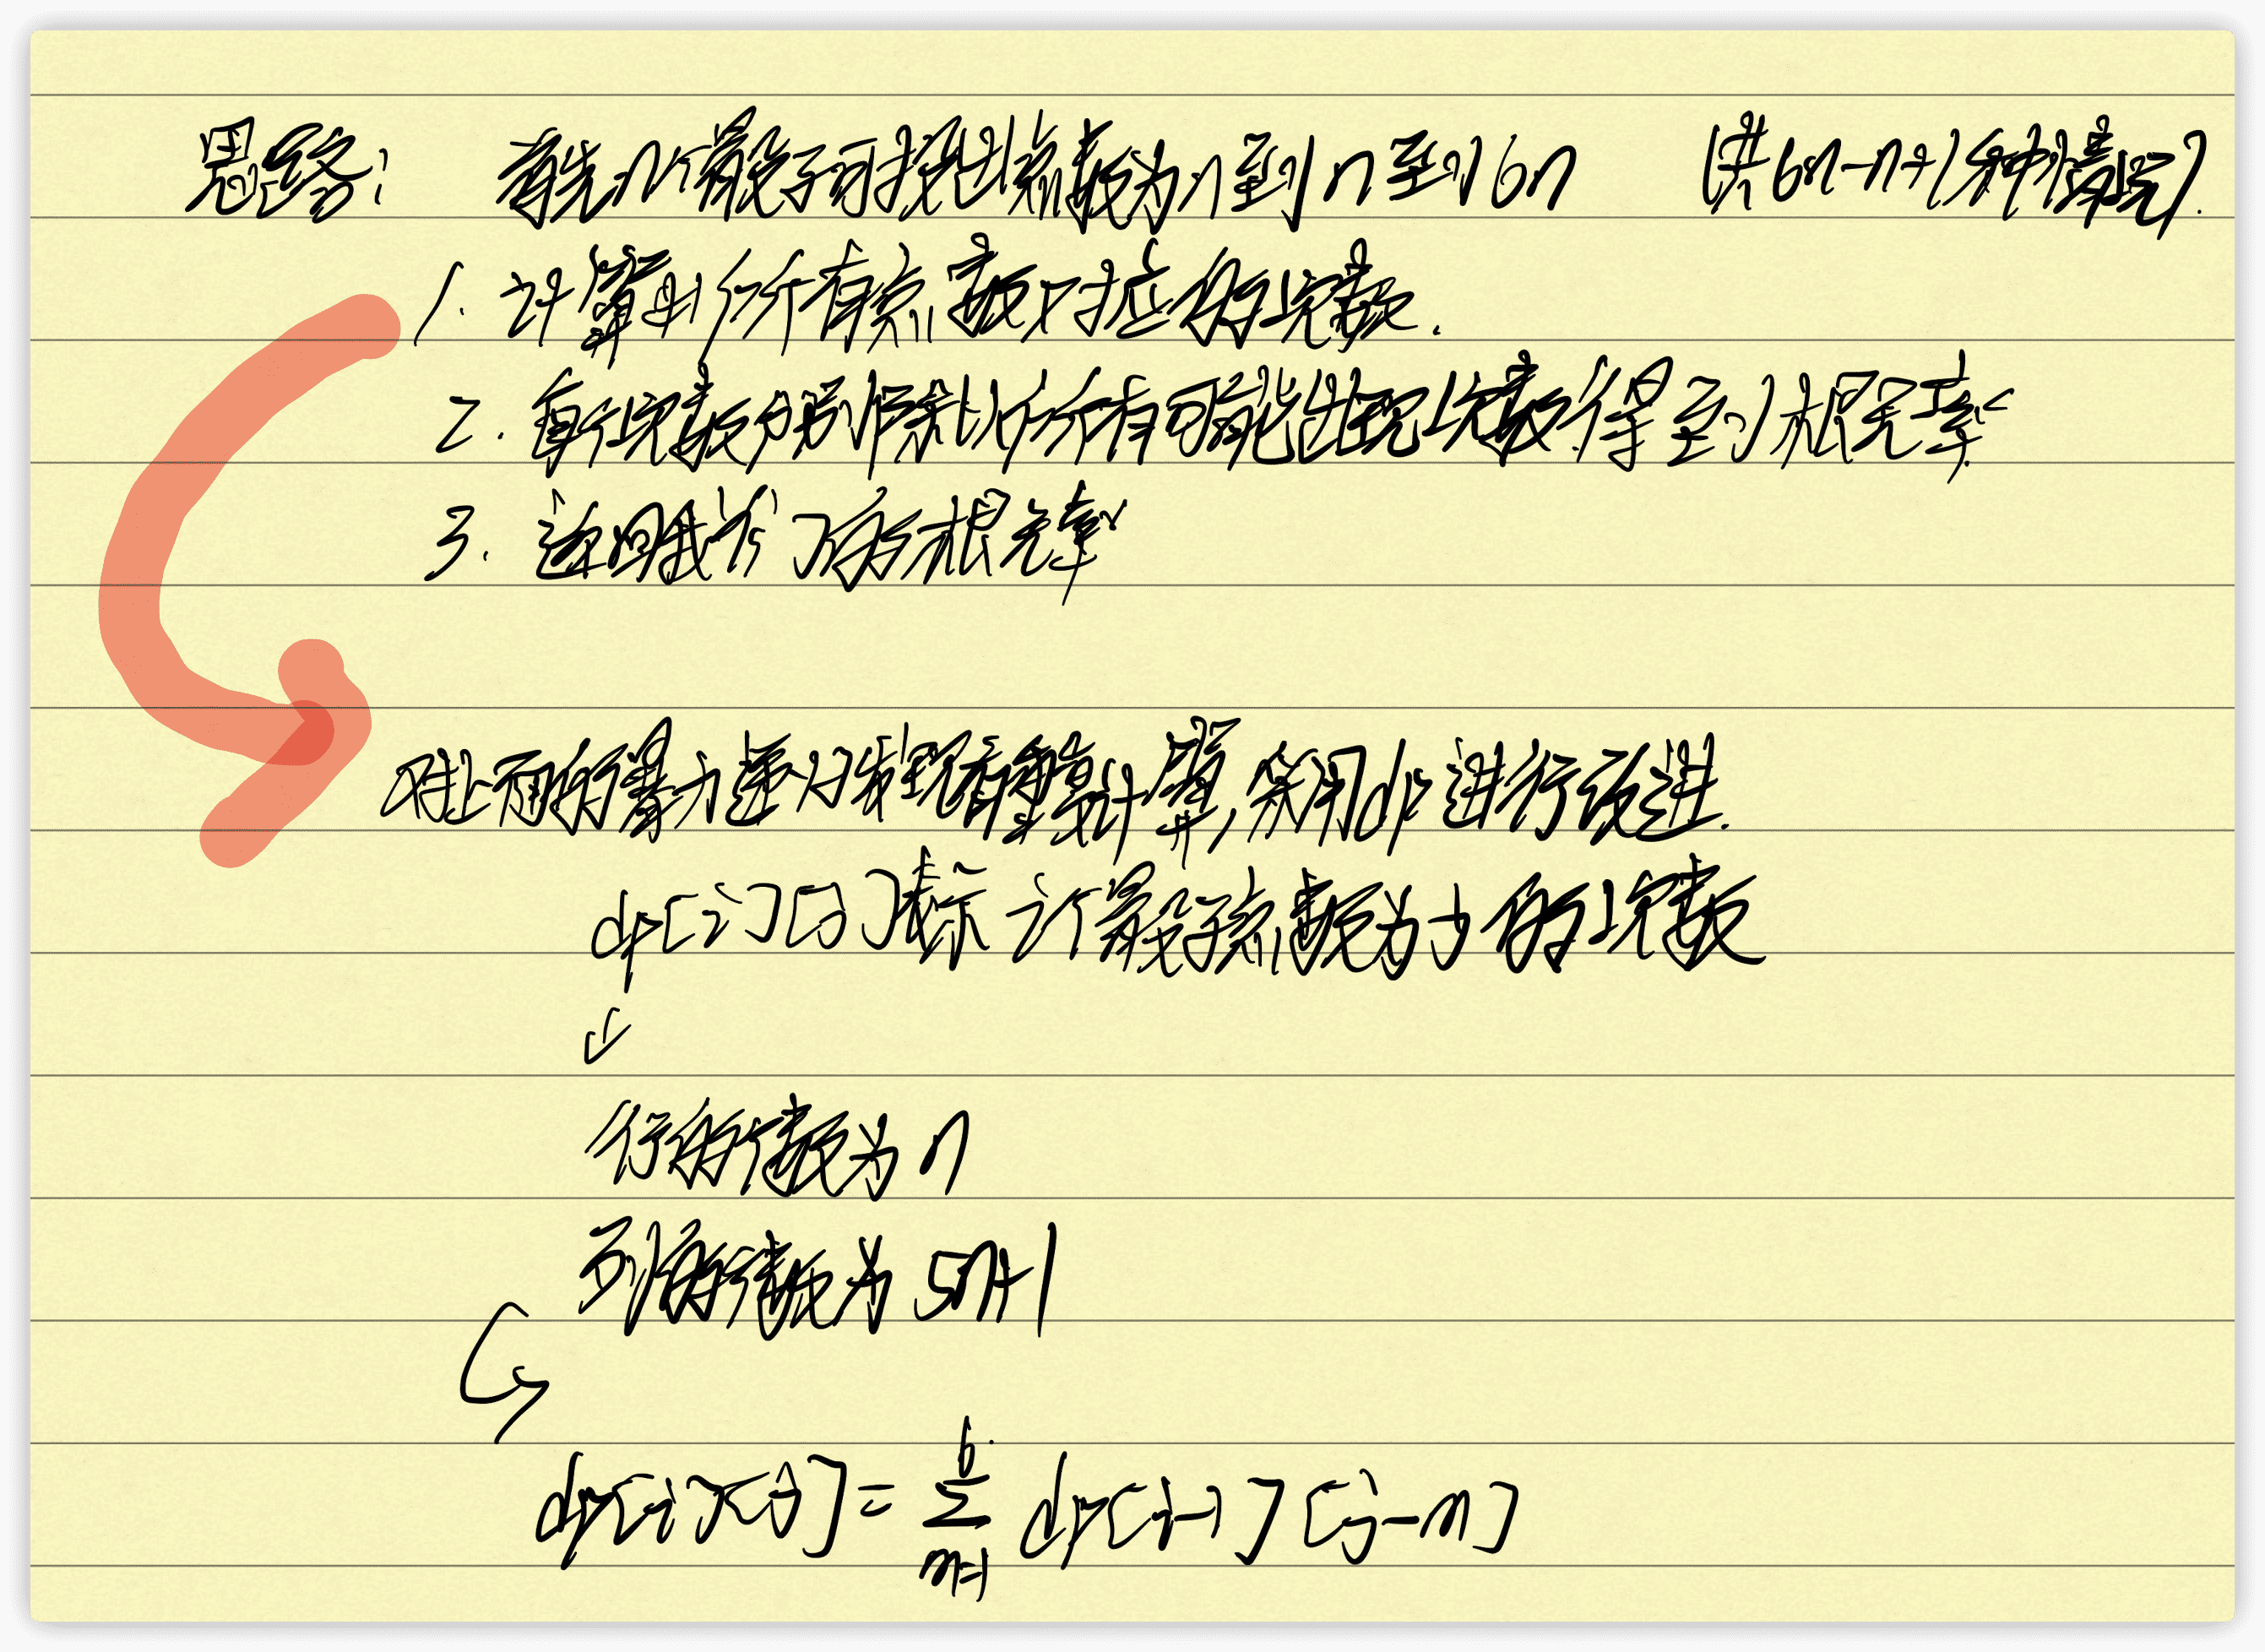 思路: 首先n个骰子可投出点数为n到n至6n (共6n-n+1种情况).
1. 计算出所有点数对应的次数.
2. 每个次数分别除以所有可能出现次数得到概率
3. 返回 概率
对上面的暴力递归发现有重复计算,采用dp进行改进.
dp[i][j]表示 i个骰子点数为j的次数
行的个数为n
列的个数为5n+1
dp[i][j] = 6∑m=1 dp[i-1][j-m]